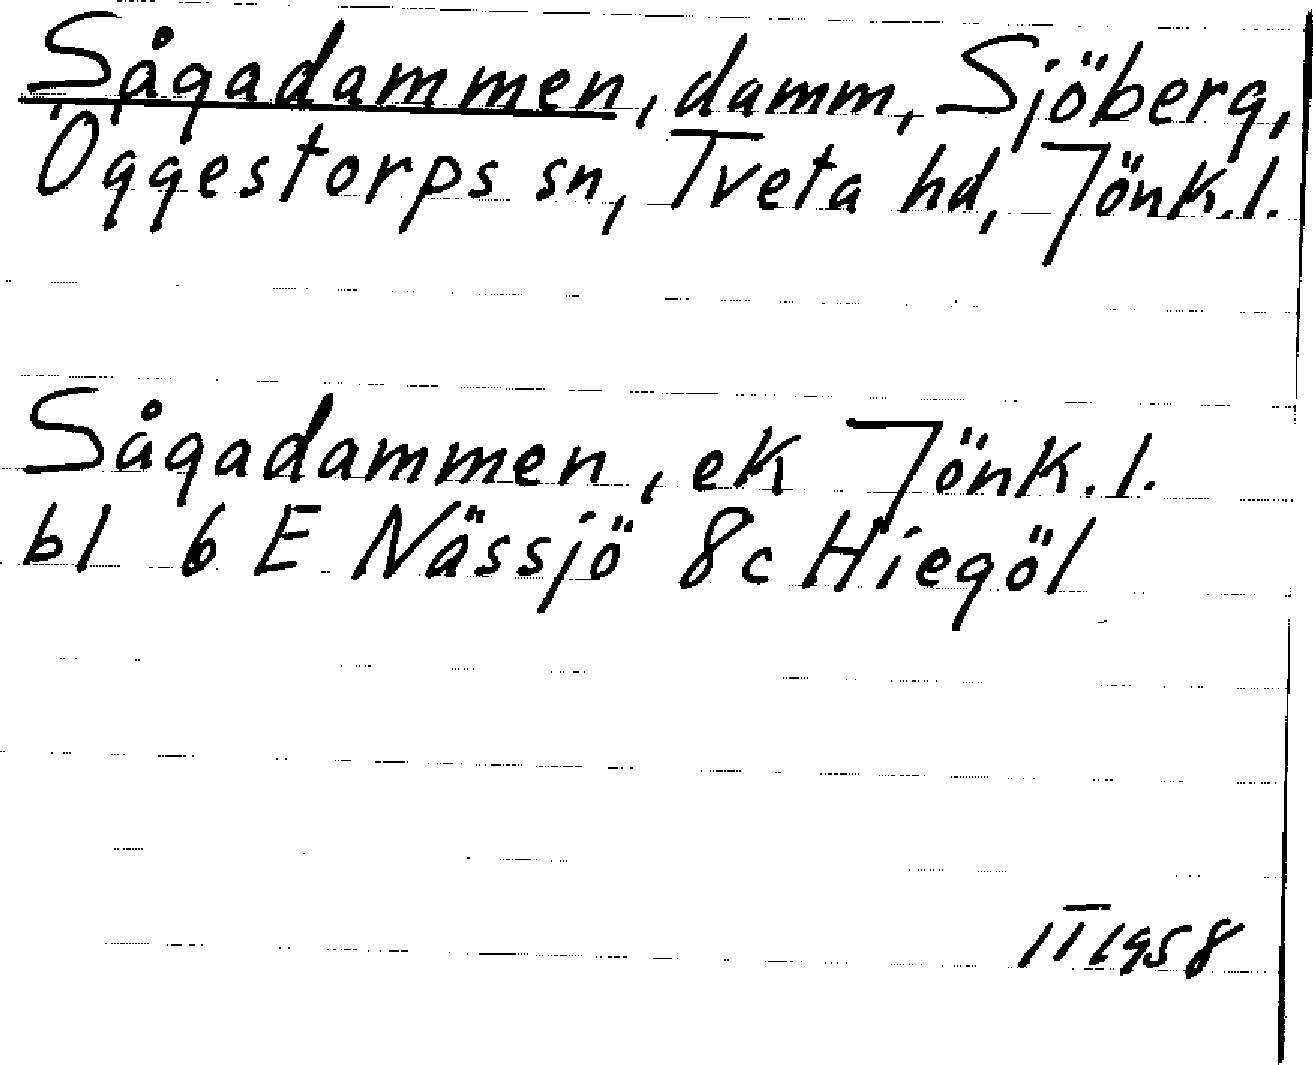 Sågadammen, damm, Sjöberg,
Öggestorps sn, Tveta hd, Jönk.l.
Sågadammen, ek Jönk.l.
bl 6 E Nässjö 8c Hiegöl
1958